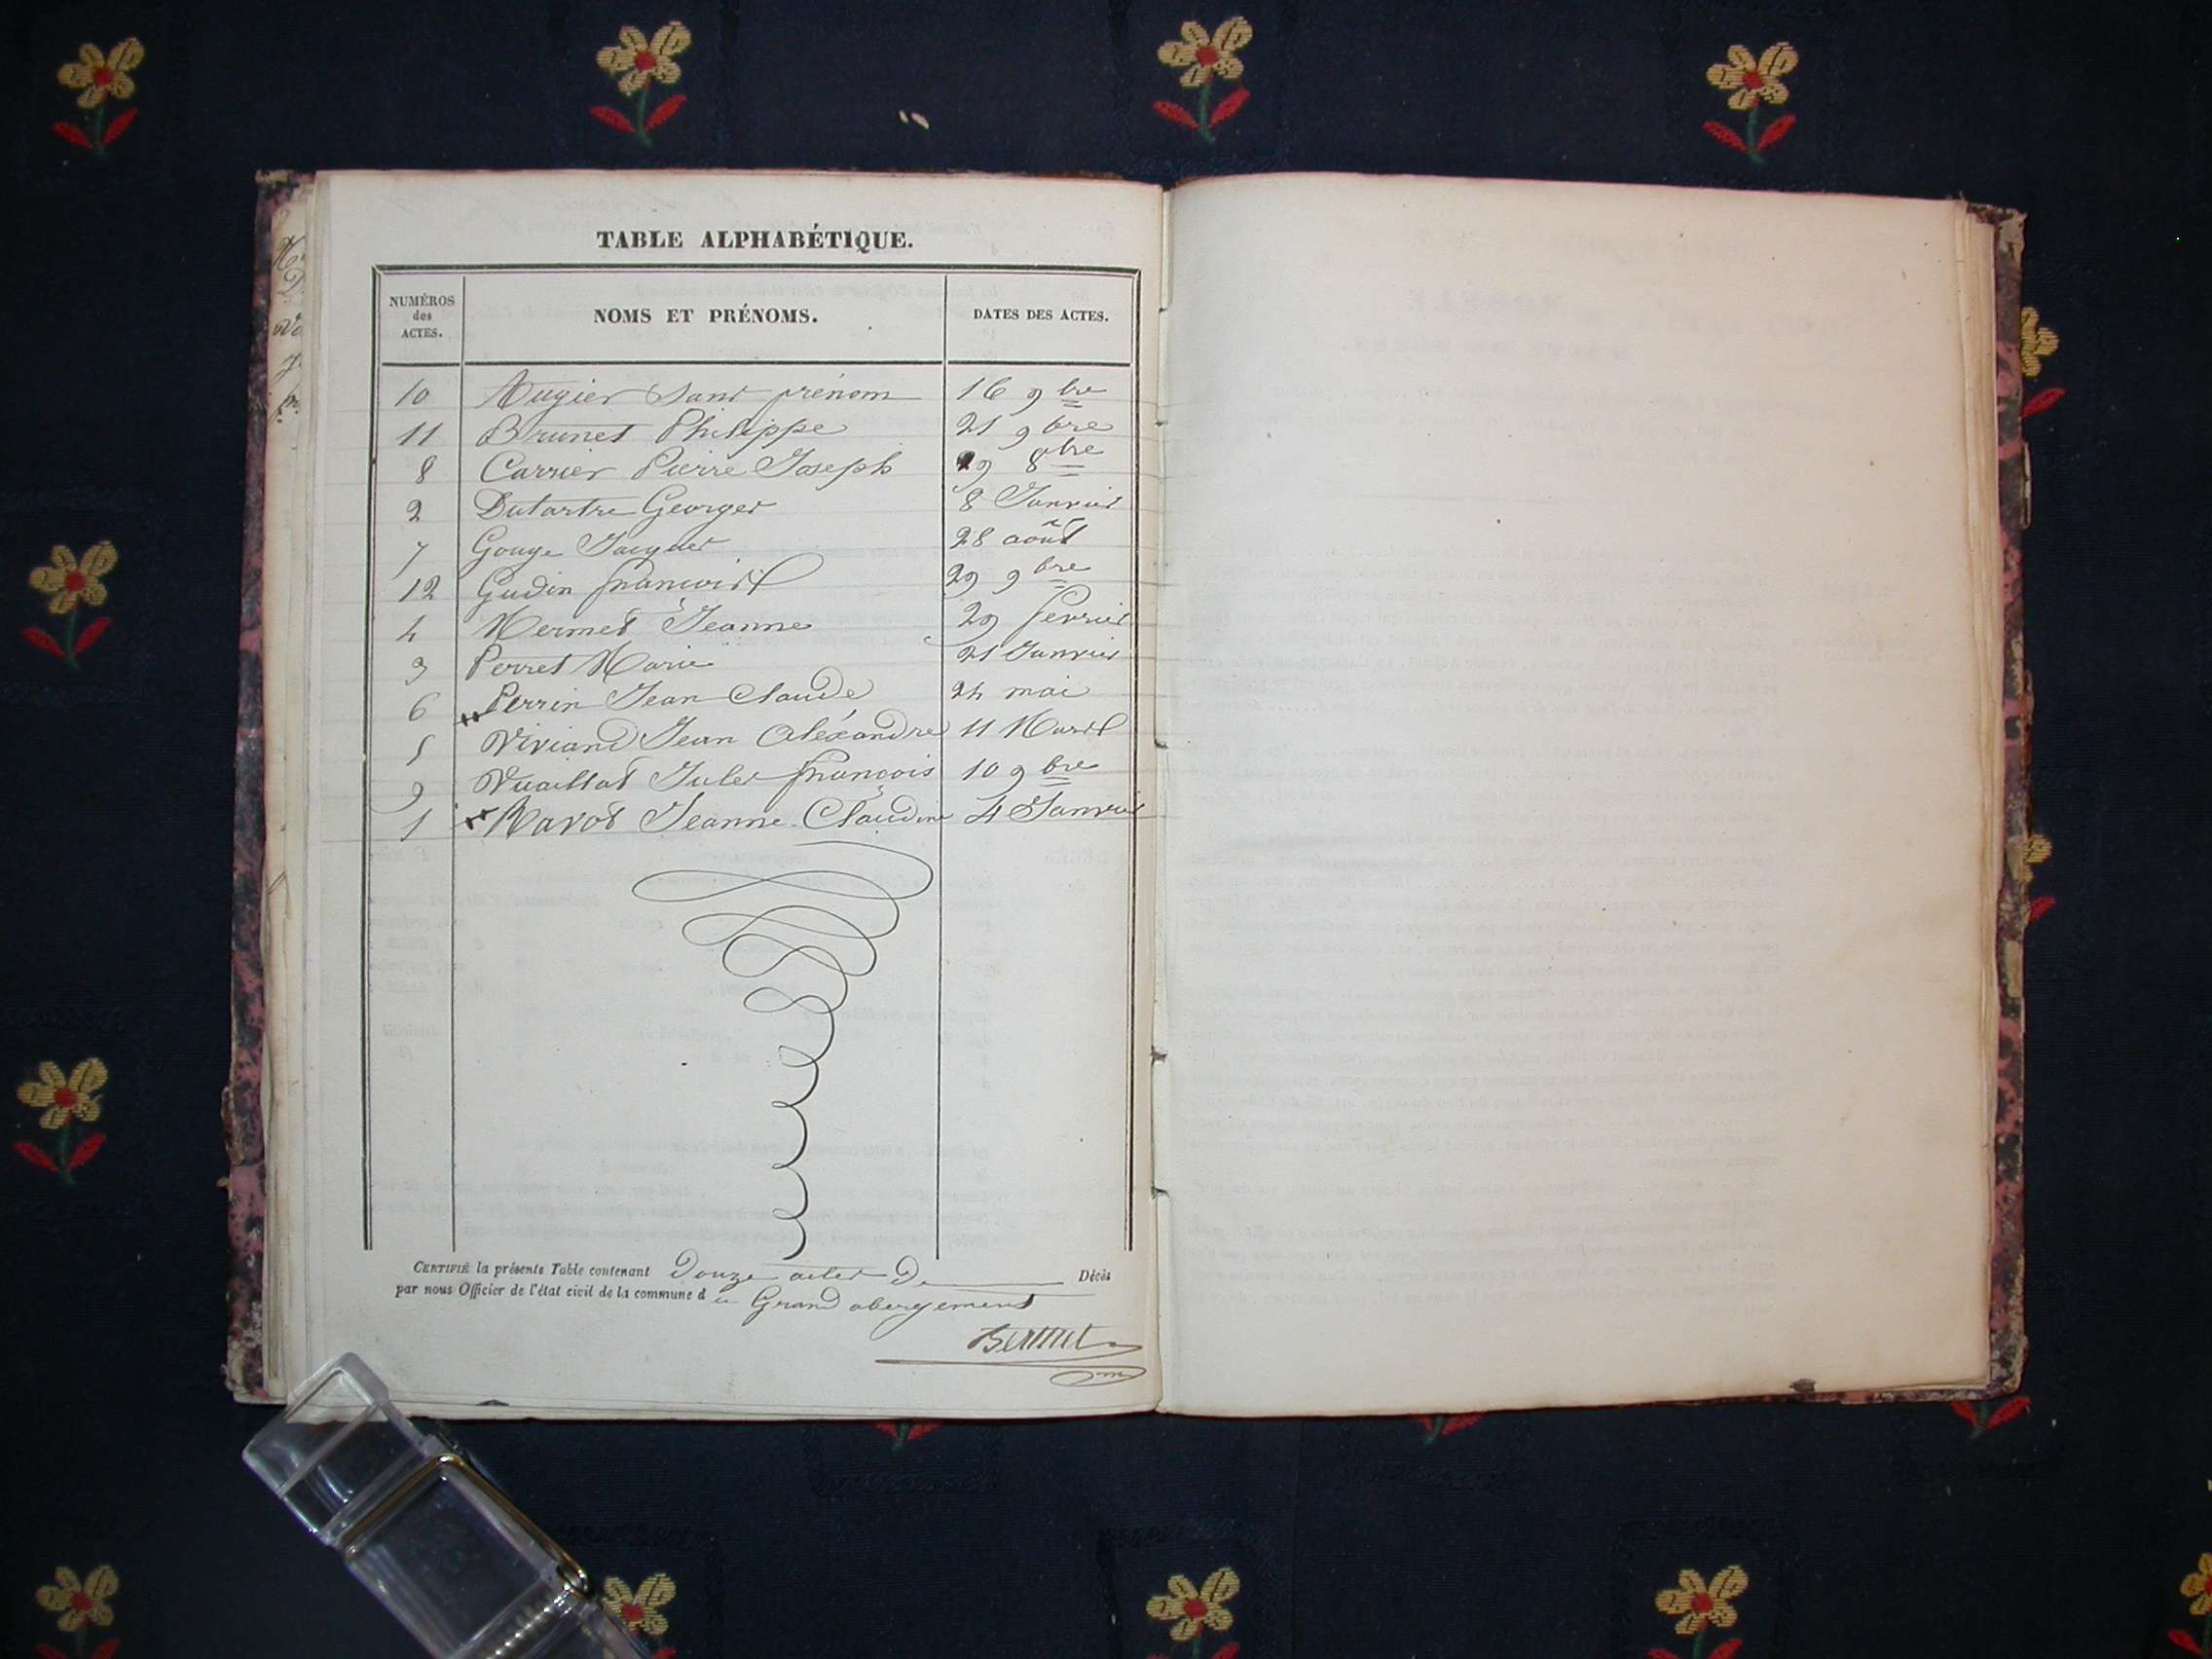 TABLE ALPHABÉTIQUE.
NUMÉROS des ACTES. NOMS ET PRÉNOMS. DATES DES ACTES.
10 Augier Sans prénom 16 9bre
11 Brunet Philippe 21 9bre
8 Carrier Pierre Joseph 29 8bre
2 Dutartre Georges 8 Janvier
7 Gouge Jacques 28 août
12 Gudin françois 29 9bre
4 Mermet Jeanne 29 fevrier
3 Perret Marie 21 Janvier
6 Perrin Jean Claude 24 mai
5 Viviand Jean Aléxandre 11 Mars
9 Vuaillat Jules françois 10 9bre
1 Ravot Jeanne Claudine 4 Janvier
CERTIFIÉ la présente Table contenant Douze actes De Décès
par nous Officier de l'état civil de la commune d u Grand abergement